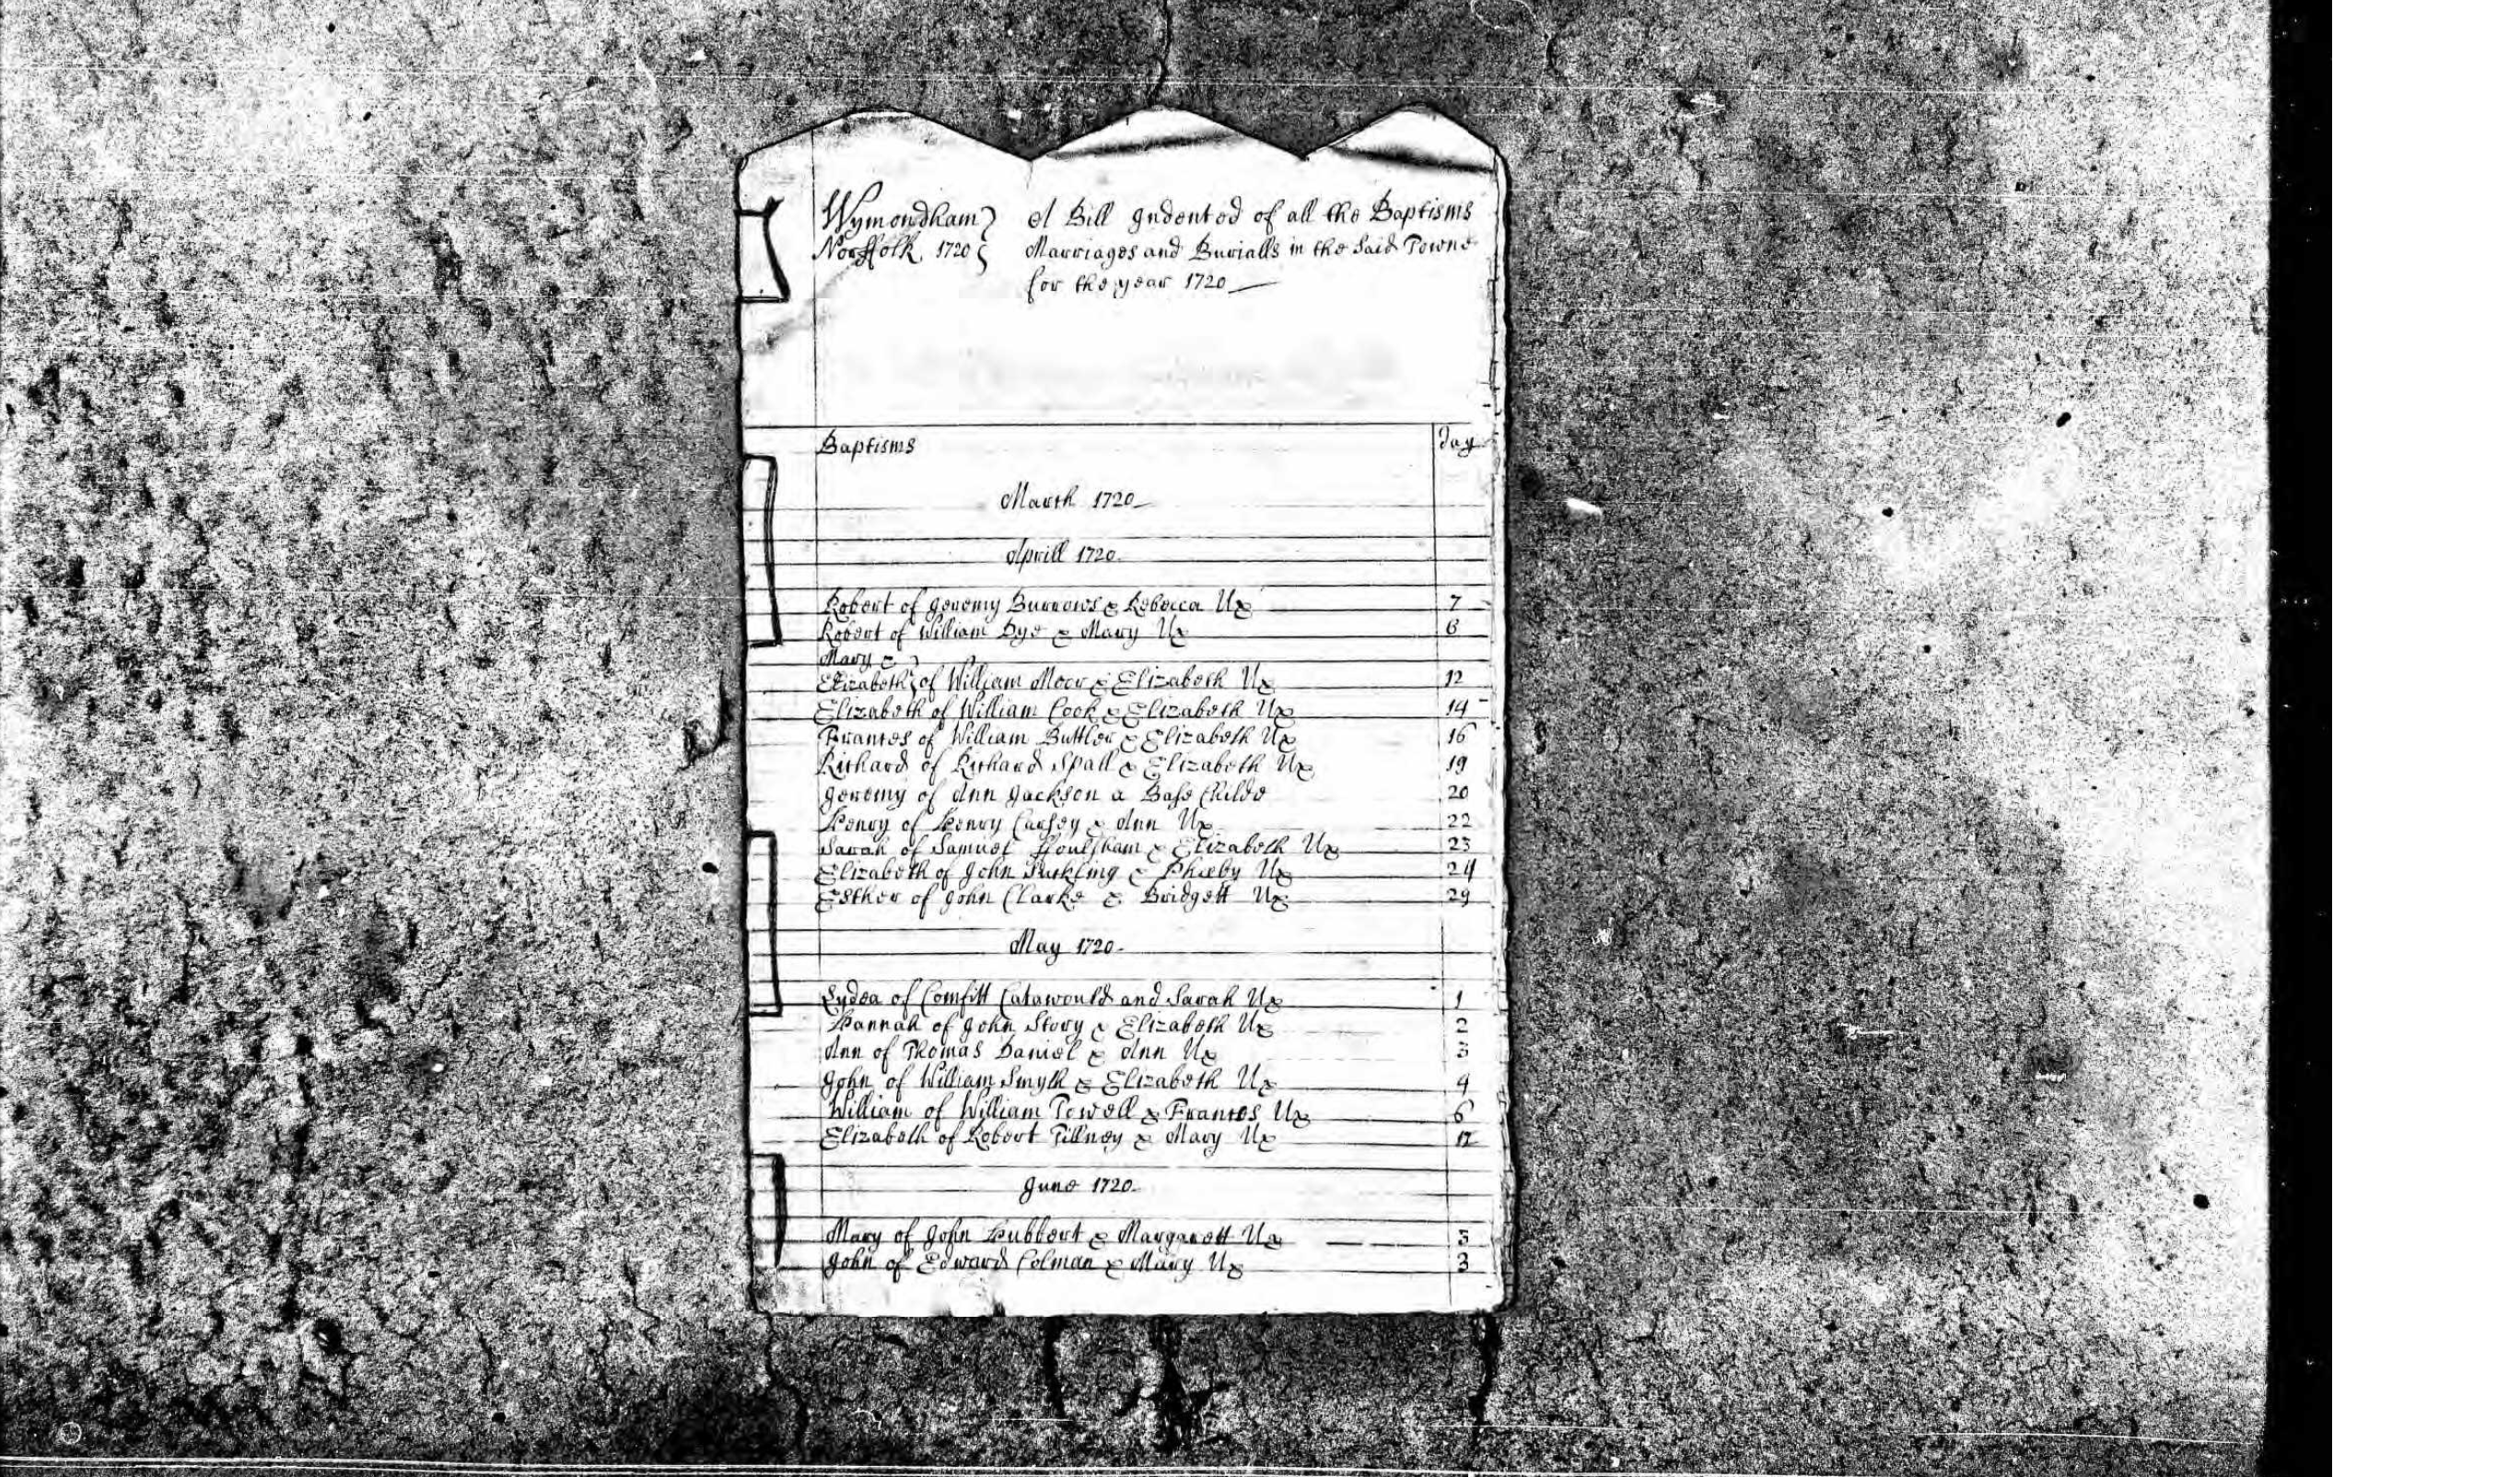 Wymondham
Norffolk, 1720
A Bill Indented of all the Baptisms
Marriages and Burialls in the Said Towne
for the year 1720
Baptisms day
March 1720
Aprill 1720
Robert of Jeremy Burrows & Rebecca Ux 7
Robert of William Dye & Mary Ux 6
Mary &
Elizabeth of William Moor & Elizabeth Ux 12
Elizabeth of William Cook & Elizabeth Ux 14
Frances of William Buttler & Elizabeth Ux 16
Richard of Richard Spall & Elizabeth Ux 19
Jeremy of Ann Jackson a Base Childe 20
Henry of Henry Carsey & Ann Ux 22
Sarah of Samuel ffoulsham & Elizabeth Ux 23
Elizabeth of John Suckling & Phœby Ux 24
Esther of John Clarke & Bridgett Ux 29
May 1720
Lydea of and Sarah Ux 1
Hannah of John Story & Elizabeth Ux 2
Ann of Thomas Daniel & Ann Ux 3
John of William Smyth & Elizabeth Ux 4
William of William Powell & Frances Ux 6
Elizabeth of Robert Tillney & Mary Ux
June 1720
Mary of John Hubbert & Margarett Ux 3
John of Edward Colman & Mary Ux 3